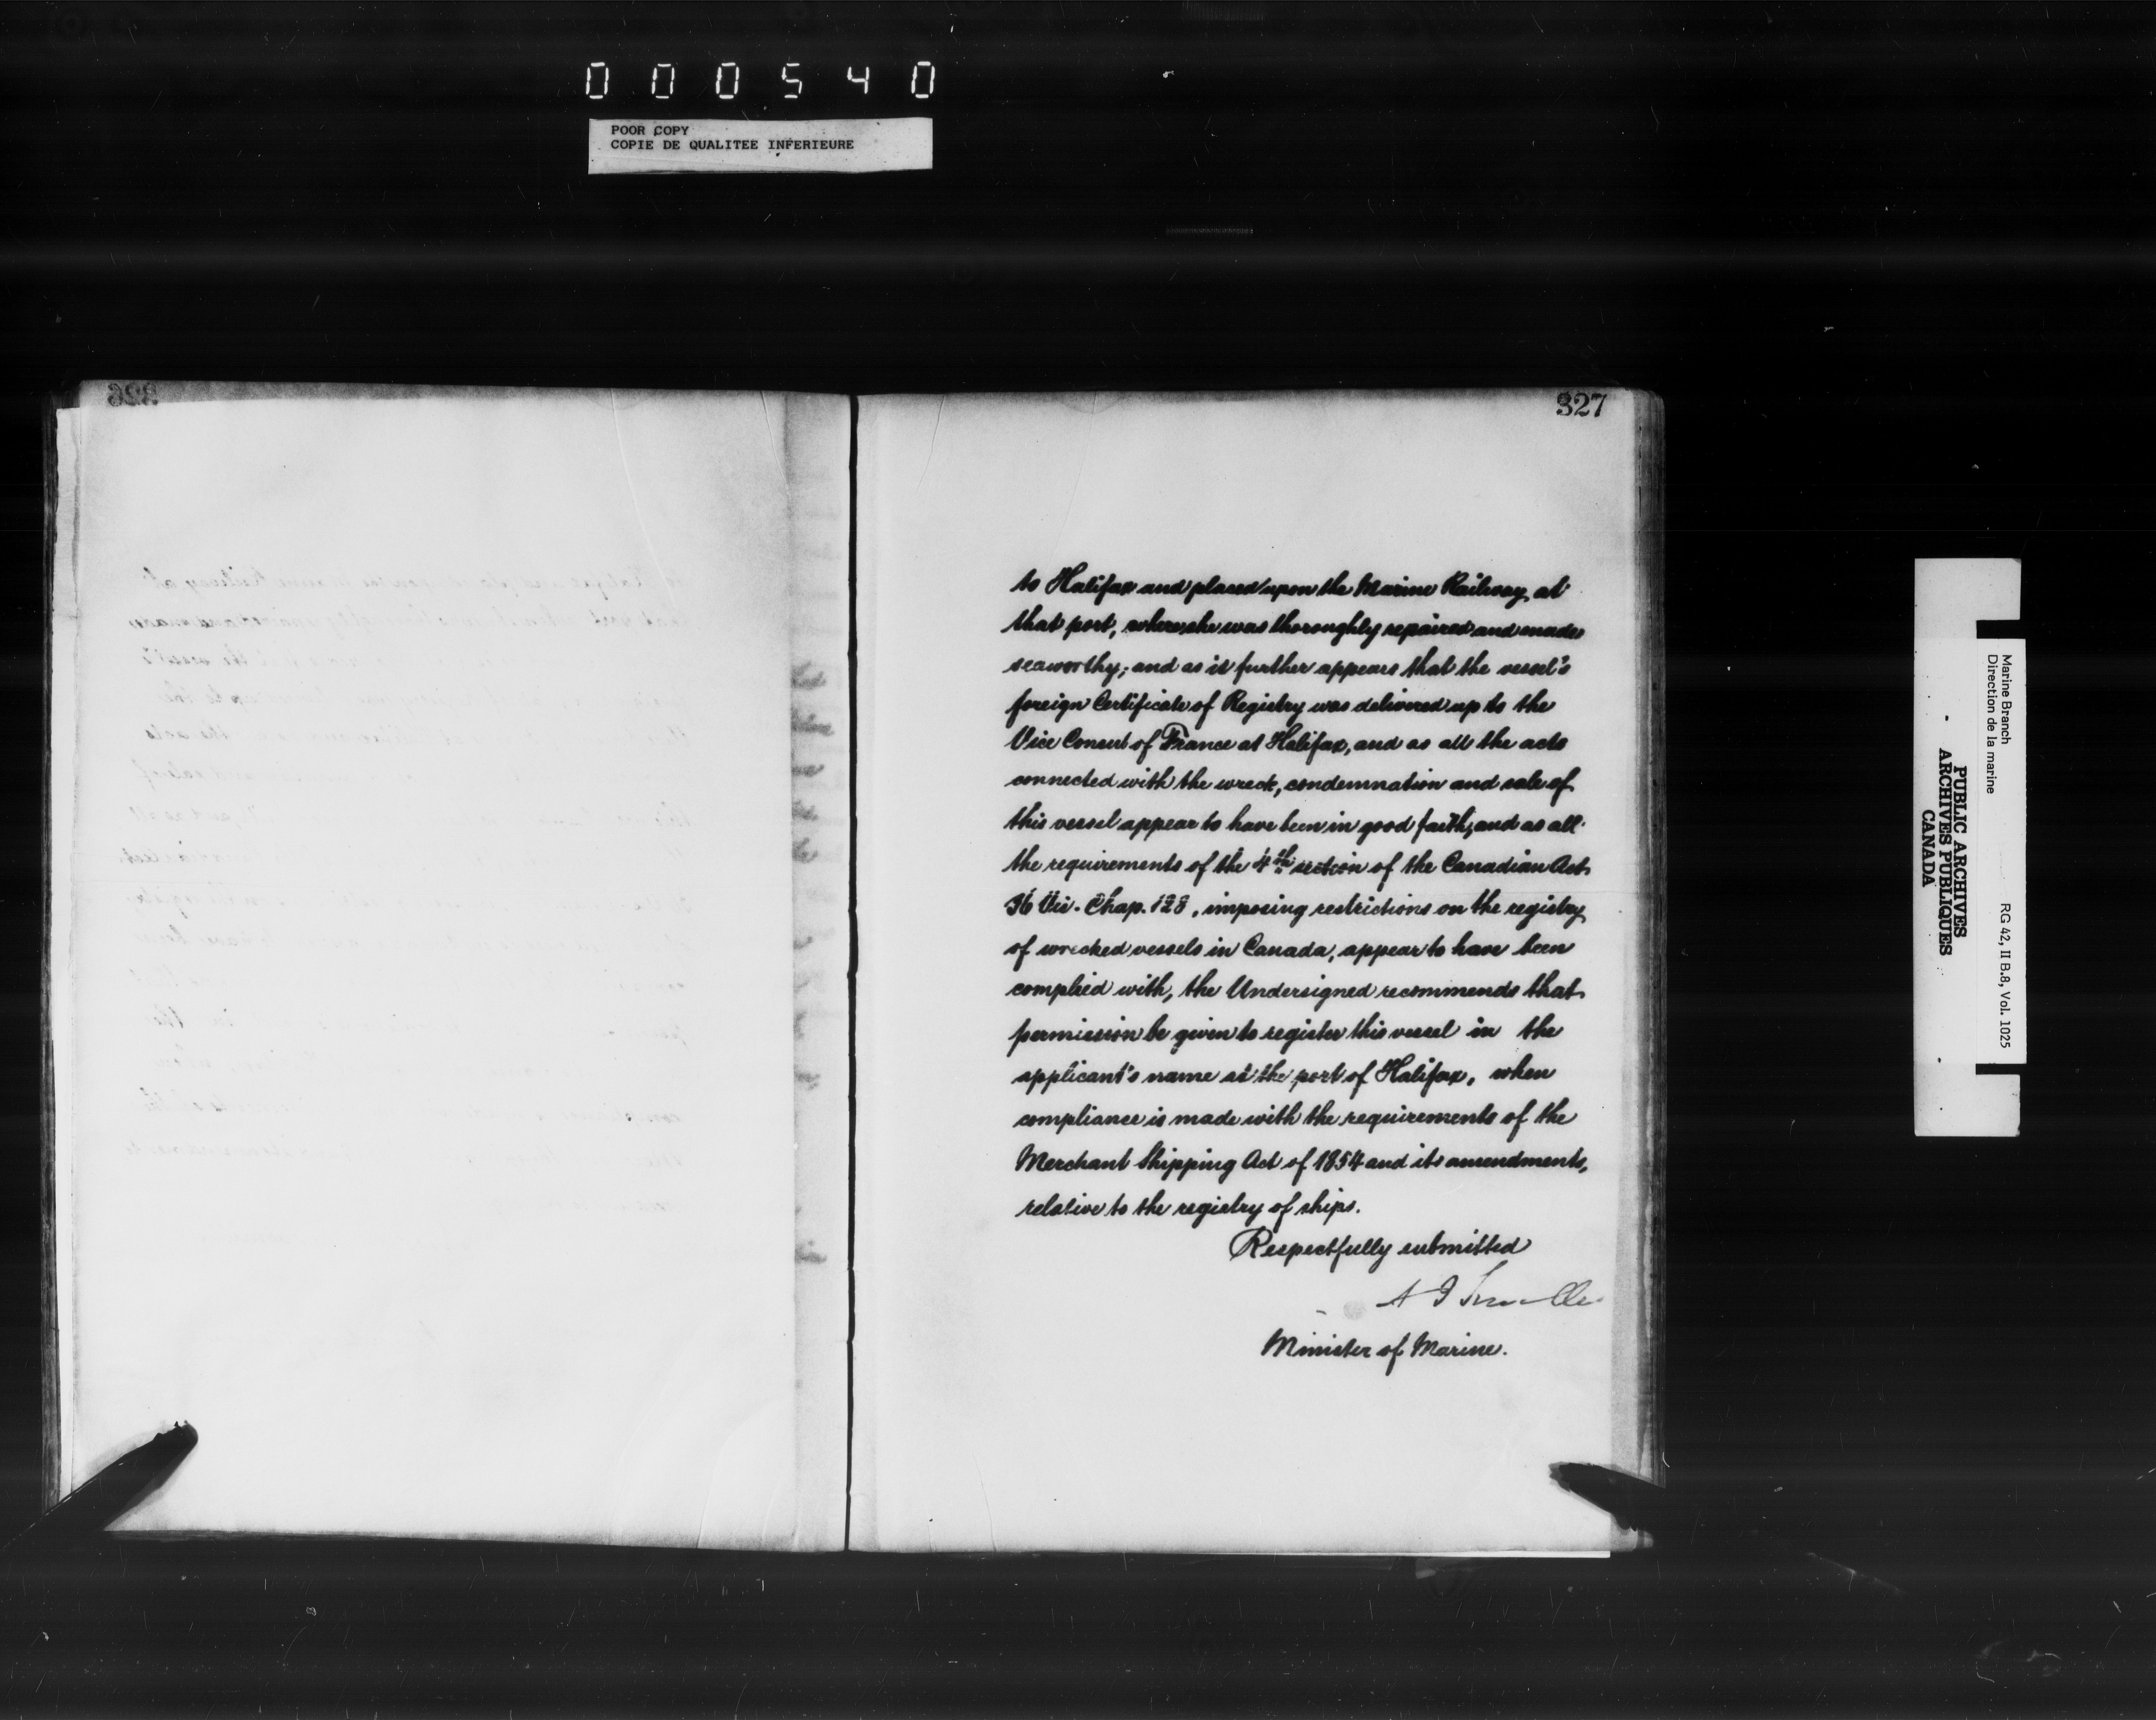 000540
POOR COPY
COPIE DE QUALITEE INFERIEURE
326
327
to Halifax and placed upon the Marine Railway at
that port, where she was thoroughly repaired and made
seaworthy; and as it further appears that the vessel's
foreign Certificate of Registry was delivered up to the
Vice Consul of France at Halifax, and as all the acts
connected with the wreck, condemnation and sale of
this vessel appear to have been in good faith, and as all
the requirements of the 4th section of the Canadian Act
36 Vic. Chap. 128, imposing restrictions on the registry
of wrecked vessels in Canada, appear to have been
complied with, the Undersigned recommends that
permission be given to register this vessel in the
applicant's name at the port of Halifax, when
compliance is made with the requirements of the
Merchant Shipping Act of 1854 and its amendments,
relative to the registry of ships.
Respectfully submitted
Minister of Marine.
Marine Branch
Direction de la marine
RG 42, II B.8, Vol. 1025
PUBLIC ARCHIVES
ARCHIVES PUBLIQUES
CANADA